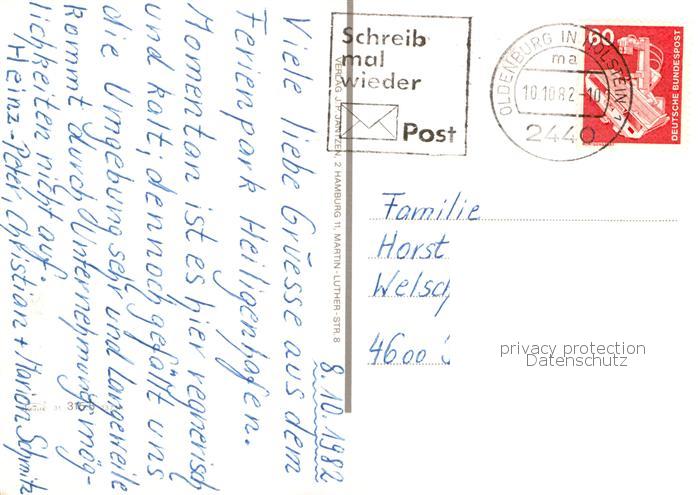 Schreib
mal
wieder
Post
OLDENBURG IN HOLSTEIN 1
ma
10.10.82-10
2440
60
DEUTSCHE BUNDESPOST
8.10.1982
Viele liebe Grüsse aus dem
Ferienpark Heiligenhafen.
Momentan ist es hier regnerisch
und kalt, dennoch gefällt uns
die Umgebung sehr und Langeweile
kommt durch Unternehmungsmög-
lichkeiten nicht auf.
Heinz-Peter, Christian + Marion Schmitz
VERLAG J. P. JANTZEN, 2 HAMBURG 11, MARTIN-LUTHER-STR. 8
Familie
Horst
Welsch
4600
privacy protection
Datenschutz